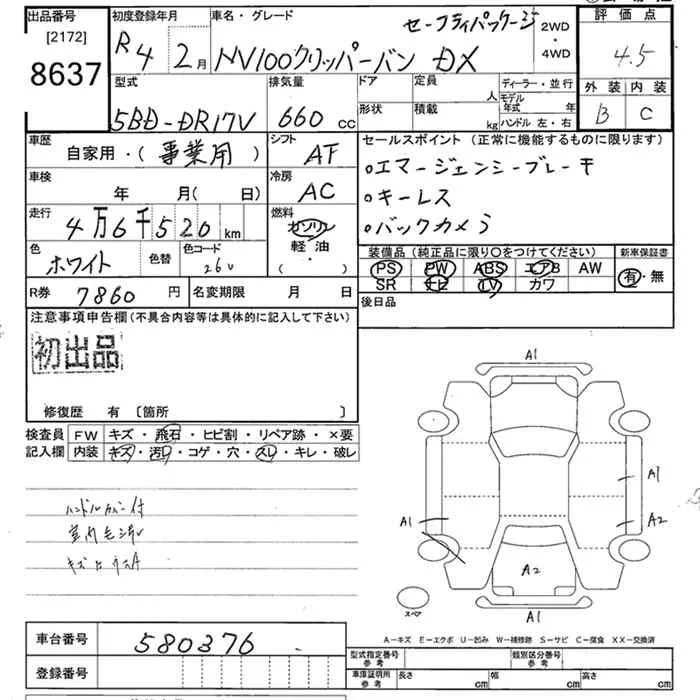 出品番号
[2172]
8637
初度登録年月
R 4 2月
車名・グレード
セーフティパッケージ
NV100クリッパーバン DX
2WD
・
4WD
評価点
4.5
外装 内装
B C
型式
5BD-DR17V
排気量
660 cc
ドア 定員 人
形状 積載 kg
ディーラー・並行
モデル年式 年
ハンドル 左・右
車歴
自家用・(事業用)
シフト
AT
車検
年 月(日)
冷房
AC
走行
4万6千520km
燃料
ガソリン
軽・油
( ・ )
色
ホワイト
色替
色コード
26U
R券 7860 円
名変期限 月 日
セールスポイント(正常に機能するものに限ります)
○エマージェンシーブレーキ
○キーレス
○バックカメラ
装備品(純正品に限り○をつけてください)
PS PW ABS エアB AW
SR ナビ TV カワ
新車保証書
有・無
後日品
注意事項申告欄(不具合内容等は具体的に記入して下さい)
初出品
修復歴 有 〔箇所 〕
検査員 FW キズ・飛石・ヒビ割・リペア跡・×要
記入欄 内装 キズ・汚レ・コゲ・穴・スレ・キレ・破レ
ハンドルカバー付
室内毛汚レ
A1
A1
A1
A2
A2
A1
スペア
A－キズ E－エクボ U－凹み W－補修跡 S－サビ C－腐食 XX－交換済
車台番号 580376
登録番号
型式指定番号
参考
類別区分番号
参考
車庫証明用
参考
長さ cm 幅 cm 高さ cm